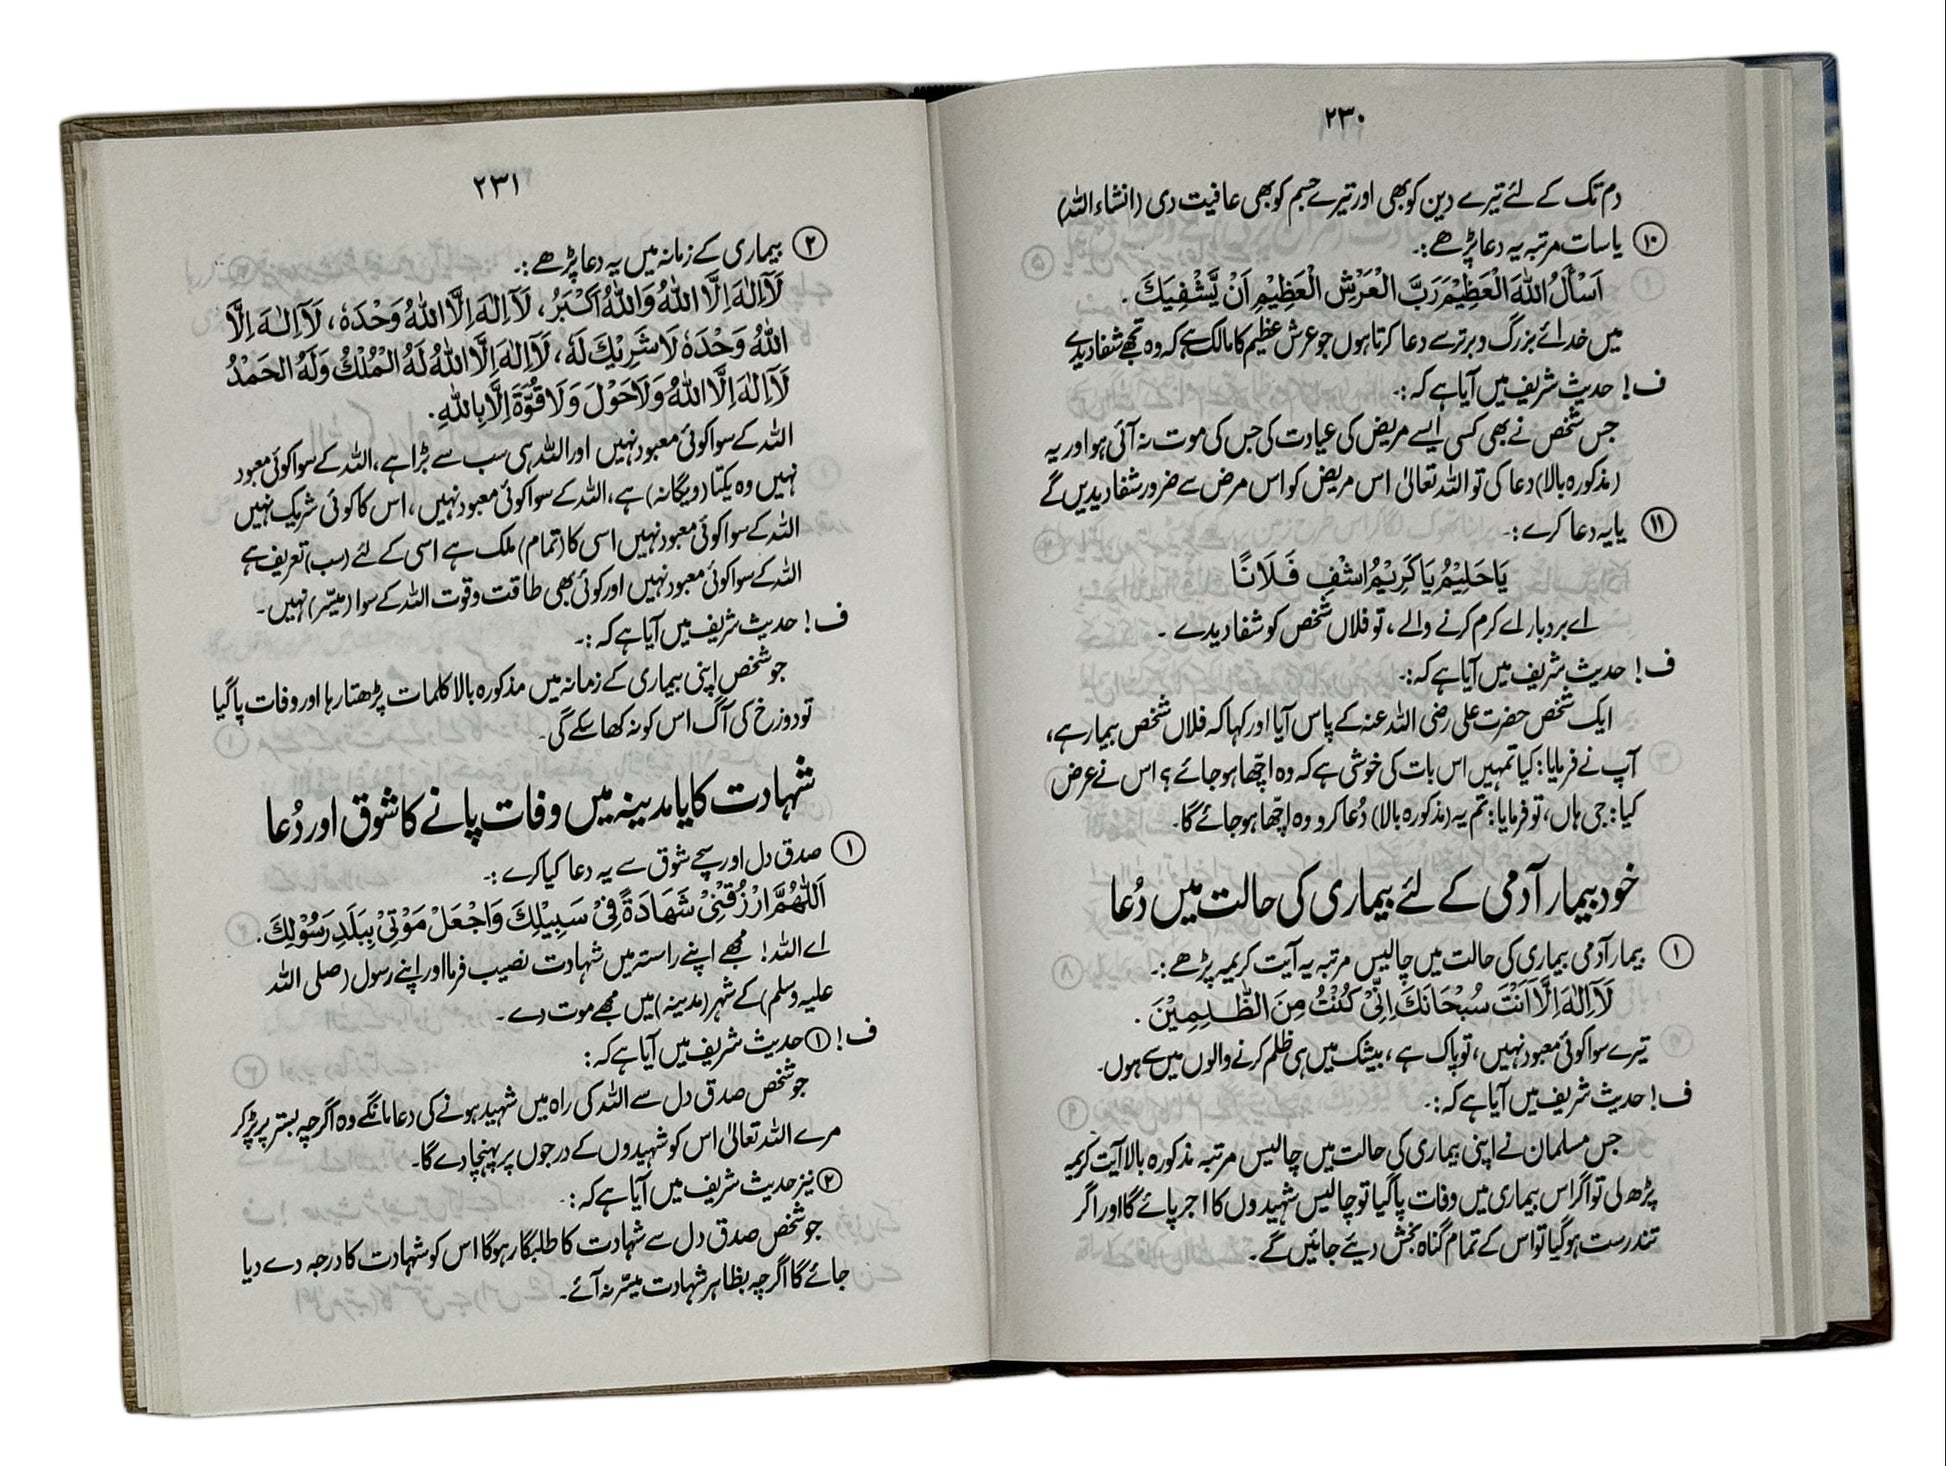 ۲۳۰
دم تک کے لئے تیرے دین کو بھی اور تیرے جسم کو بھی عافیت دی (انشاء اللہ)
۱۰ یا سات مرتبہ یہ دعا پڑھے:۔
اَسْأَلُ اللّٰهَ الْعَظِيْمَ رَبَّ الْعَرْشِ الْعَظِيْمِ اَنْ يَّشْفِيَكَ ۔
میں خدائے بزرگ و برتر سے دعا کرتا ہوں جو عرش عظیم کا مالک ہے کہ وہ تجھے شفا دیدے
ف! حدیث شریف میں آیا ہے کہ:۔
جس شخص نے بھی کسی ایسے مریض کی عیادت کی جس کی موت نہ آئی ہو اور یہ
(مذکورہ بالا) دعا کی تو اللہ تعالیٰ اس مریض کو اس مرض سے ضرور شفا دیدیں گے
۱۱ یا یہ دعا کرے:۔
يَا حَلِيْمُ يَا كَرِيْمُ اشْفِ فَلَانًا
اے بردبار اے کرم کرنے والے، تو فلاں شخص کو شفا دیدے ۔
ف! حدیث شریف میں آیا ہے کہ:۔
ایک شخص حضرت علی رضی اللہ عنہ کے پاس آیا اور کہا کہ فلاں شخص بیمار ہے،
آپ نے فرمایا: کیا تمہیں اس بات کی خوشی ہے کہ وہ اچھا ہو جائے؟ اس نے عرض
کیا: جی ہاں، تو فرمایا: تم یہ (مذکورہ بالا) دُعا کرو وہ اچھا ہو جائے گا۔
خود بیمار آدمی کے لئے بیماری کی حالت میں دُعا
۱ بیمار آدمی بیماری کی حالت میں چالیس مرتبہ یہ آیت کریمہ پڑھے:۔
لَآ اِلٰهَ اِلَّا اَنْتَ سُبْحَانَكَ اِنِّيْ كُنْتُ مِنَ الظّٰلِمِيْنَ ۔
تیرے سوا کوئی معبود نہیں، تو پاک ہے، بیشک میں ہی ظلم کرنے والوں میں سے ہوں۔
ف! حدیث شریف میں آیا ہے کہ:۔
جس مسلمان نے اپنی بیماری کی حالت میں چالیس مرتبہ مذکورہ بالا آیت کریمہ
پڑھ لی تو اگر اس بیماری میں وفات پا گیا تو چالیس شہیدوں کا اجر پائے گا اور اگر
تندرست ہو گیا تو اس کے تمام گناہ بخش دیئے جائیں گے۔
۲۳۱
۲ بیماری کے زمانہ میں یہ دعا پڑھے:۔
لَآ اِلٰهَ اِلَّا اللّٰهُ وَاللّٰهُ اَكْبَرُ، لَآ اِلٰهَ اِلَّا اللّٰهُ وَحْدَهٗ، لَآ اِلٰهَ اِلَّا
اللّٰهُ وَحْدَهٗ لَا شَرِيْكَ لَهٗ، لَآ اِلٰهَ اِلَّا اللّٰهُ لَهُ الْمُلْكُ وَلَهُ الْحَمْدُ
لَآ اِلٰهَ اِلَّا اللّٰهُ وَلَا حَوْلَ وَلَا قُوَّةَ اِلَّا بِاللّٰهِ۔
اللہ کے سوا کوئی معبود نہیں اور اللہ ہی سب سے بڑا ہے، اللہ کے سوا کوئی معبود
نہیں وہ یکتا (ویگانہ) ہے، اللہ کے سوا کوئی معبود نہیں، اس کا کوئی شریک نہیں
اللہ کے سوا کوئی معبود نہیں اسی کا (تمام) ملک ہے اسی کے لئے (سب) تعریف ہے
اللہ کے سوا کوئی معبود نہیں اور کوئی بھی طاقت و قوت اللہ کے سوا (میسّر) نہیں۔
ف! حدیث شریف میں آیا ہے کہ:۔
جو شخص اپنی بیماری کے زمانہ میں مذکورہ بالا کلمات پڑھتا رہا اور وفات پا گیا
تو دوزخ کی آگ اس کو نہ کھا سکے گی۔
شہادت کا یا مدینہ میں وفات پانے کا شوق اور دُعا
۱ صدق دل اور سچے شوق سے یہ دعا کیا کرے:۔
اَللّٰهُمَّ ارْزُقْنِيْ شَهَادَةً فِيْ سَبِيْلِكَ وَاجْعَلْ مَوْتِيْ بِبَلَدِ رَسُوْلِكَ۔
اے اللہ! مجھے اپنے راستہ میں شہادت نصیب فرما اور اپنے رسول (صلی اللہ
علیہ وسلم) کے شہر (مدینہ) میں مجھے موت دے۔
ف! ۱ حدیث شریف میں آیا ہے کہ:
جو شخص صدق دل سے اللہ کی راہ میں شہید ہونے کی دعا مانگے وہ اگرچہ بستر پر پڑ کر
مرے اللہ تعالیٰ اس کو شہیدوں کے درجوں پر پہنچا دے گا۔
۲ نیز حدیث شریف میں آیا ہے کہ:۔
جو شخص صدق دل سے شہادت کا طلبگار ہوگا اس کو شہادت کا درجہ دے دیا
جائے گا اگرچہ بظاہر شہادت میسّر نہ آئے۔